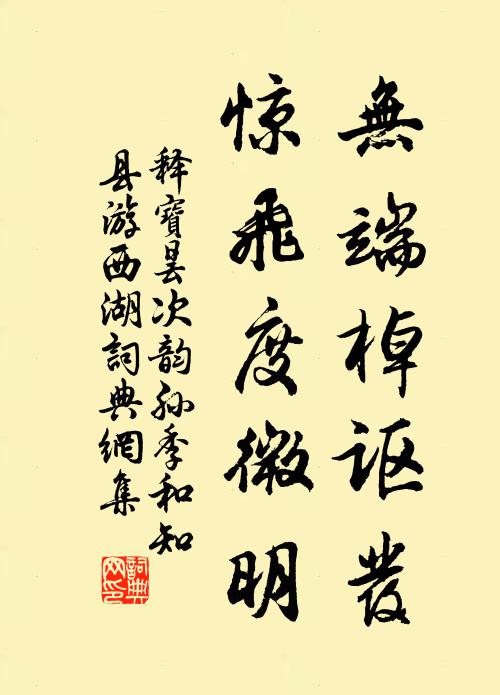 無端棹讴發
惊飛度微明
释寶昙次韵孙季和知
县游西湖詞典網集
詞典
网印